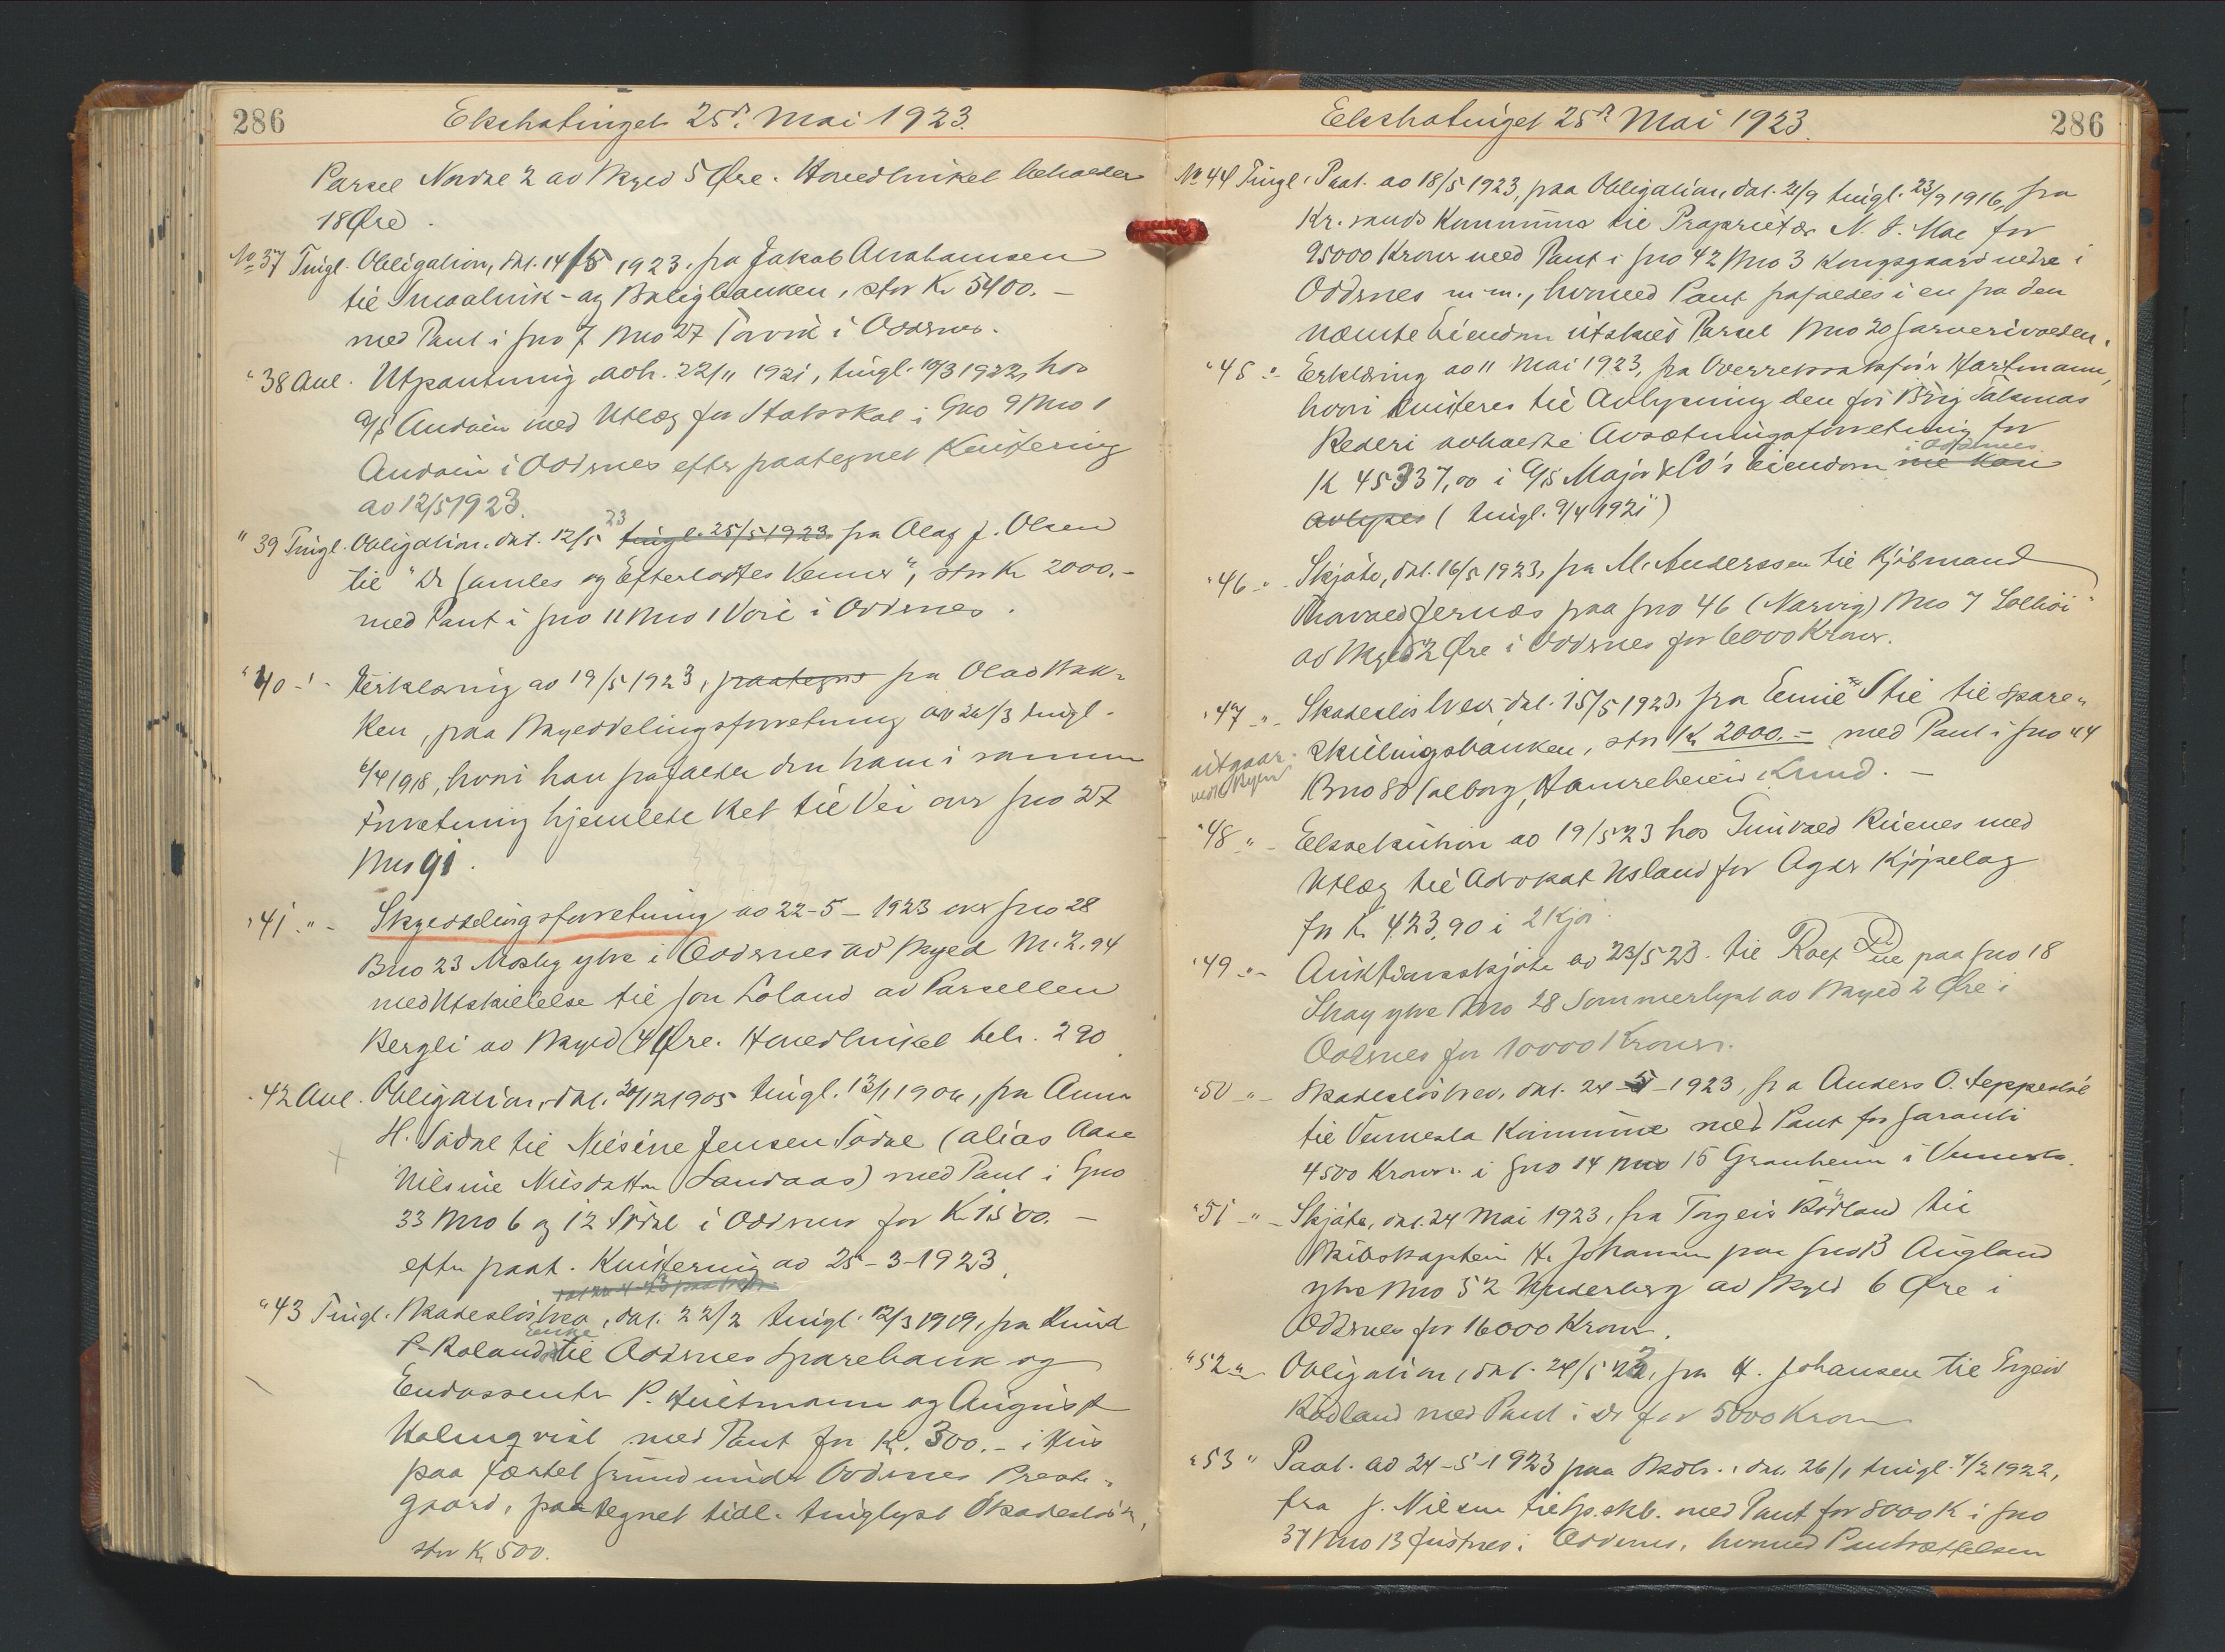 286
Ekstratinget 25de Mai 1923.
Parsel Nordre 2 av Skyld 5 Øre. Hovedbruket beholder
18 Øre.
No 37 Tingl. Obligation, dat. 14/5 1923, fra Jakob Abrahamsen
til Smaabruk- og Boligbanken, stor Kr 5400.-
med Pant i Gno 7 Bno 27 i Oddernes.
" 38 Avl. Utpantning avh. 22/11 1921, tingl. 10/3 1922, hos
A/S Andøen med Utlæg for Statsskat i Gno 9 Bno 1
Andøen i Oddernes efter paategnet Kvittering
av 12/5 1923.
" 39 Tingl. Obligation, dat. 12/5 23 tingl. 25/5 1923 fra Olaf J. Olsen
til "De Gamles og Efterladtes Venner", stor Kr 2000.-
med Pant i Gno 11 Bno 1 Voie i Oddernes.
" 40 -"- Erklæring av 19/5 1923, paategn fra Olav Bak-
ken, paa Skylddelingsforretning av 26/3 tingl.
6/4 1918, hvori han frafalder den ham i samme
Forretning hjemlede Ret til Vei over Gno 27
Bno 91.
" 41 -"- Skylddelingsforretning av 22-5-1923 over Gno 28
Bno 23 Mosby ytre i Oddernes av Skyld M. 2.94
med Utskillelse til Jon Loland av Parsellen
Bergli av Skyld 4 Øre. Hovedbruket beh. 2 90.
" 42 Avl. Obligation, dat. 30/12 1905 tingl. 13/1 1906, fra Anna
H. Sødal til Nilsine Jensen Sødal (alias Aase
Nilsine Nilsdatter Landaas) med Pant i Gno
33 Bno 6 og 12 Sødal i Oddernes for Kr 1500.-
efter paat. Kvittering av 25-3-1923.
" 43 Tingl. Skadesløsbrev, dat. 22/2 tingl. 12/3 1919, fra Knud
P. Roland's Enke til Oddernes Sparebank og
Endossenter P. Hultmann og August
Holmqvist med Pant for Kr. 300.- i Hus
paa fæstet Grund under Oddernes Preste-
gaard, paategnet tidl. tinglyst Skadesløsbr,
stor Kr 500.
Ekstratinget 25de Mai 1923.
286
No 44 Tingl. Paat. av 18/5 1923, paa Obligation, dat. 21/9 tingl. 23/9 1916, fra
Kr.sands Kommune til Proprietær N. J. Moe for
95000 Kroner med Pant i Gno 42 Bno 3 Kongsgaard nedre i
Oddernes m.m., hvorved Pant frafaldes i en fra den
nævnte Eiendom utskilt Parsel Bno 20 Garverivolden.
" 45 -"- Erklæring av 11 Mai 1923, fra Overretssakfører Hartmann,
hvori kvitteres til Avlysning den for Brig Talsmas
Rederi avholdte Avsætningsforretning for
K 45337,00 i A/S Major & CO's Eiendom i Oddernes
avlyses (tingl. 9/4 1921)
" 46 -"- Skjøte, dat. 16/5 1923, fra M. Anderssen til Kjøbmand
Thorvald Jernæs paa Gno 46 (Narvig) Bno 7 Solhøi
av Skyld 2 Øre i Oddernes for 6000 Kroner.
" 47 -"- Skadesløsbrev, dat. 15/5 1923, fra Emil Stie til Spare-
skillingsbanken, stor Kr 2000.- med Pant i Gno 44
utgaar
Bno 80 Solborg, Hamreheien i Grund.-
" 48 -"- Eksekution av 19/5 23 hos Gunvald Ruenes med
Utlæg til Advokat Usland for Agder Kjøpelag
for Kr 423,90 i 2 Kjør.
" 49 -"- Auktionsskjøte av 23/5 23. til Rolf Lie paa Gno 18
Stray ytre Bno 28 Sommerlyst av Skyld 2 Øre i
Oddernes for 10000 Kroner.
" 50 -"- Skadesløsbrev, dat. 24-5-1923, fra Anders O. Heppestøl
til Vennesla Kommune med Pant for Garanti
4500 Kroner i Gno 14 Bno 15 Granheim i Vennesla.
" 51 -"- Skjøte, dat. 24 Mai 1923, fra Torgeir Bödland til
Skibskaptein H. Johansen paa Gno 13 Augland
ytre Bno 52 av Skyld 6 Øre i
Oddernes for 16000 Kroner.
" 52 " Obligation, dat. 24/5 23, fra H. Johansen til Torgeir
Bödland med Pant i Do for 5000 Kroner
" 53 " Paat. av 24-5-1923 paa Skdbr., dat. 26/1 tingl. 4/2 1922,
fra J. Nilsen til Sp.skb. med Pant for 8000 K i Gno
37 Bno 13 Justnes i Oddernes, hvorved Pantrættelsen